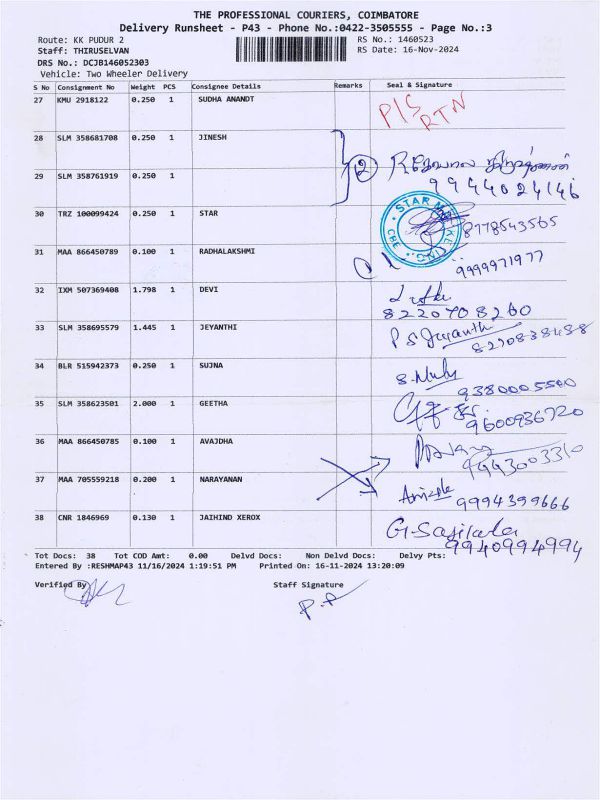 THE PROFESSIONAL COURIERS, COIMBATORE
Delivery Runsheet - P43 - Phone No.:0422-3505555 - Page No.:3
Route: KK PUDUR 2 RS No.: 1460523
Staff: THIRUSELVAN RS Date: 16-Nov-2024
DRS No.: DCJB146052303
Vehicle: Two Wheeler Delivery
S No Consignment No Weight PCS Consignee Details Remarks Seal & Signature
27 KMU 2918122 0.250 1 SUDHA ANANDT P/S RTN
28 SLM 358681708 0.250 1 JINESH
29 SLM 358761919 0.250 1 2 9944024146
30 TRZ 100099424 0.250 1 STAR STAR CBE 8778543565
31 MAA 866450789 0.100 1 RADHALAKSHMI 9999971977
32 IXM 507369408 1.798 1 DEVI 8220708260
33 SLM 358695579 1.445 1 JEYANTHI 8270838488
34 BLR 515942373 0.250 1 SUJNA 9380005500
35 SLM 358623501 2.000 1 GEETHA 9600936720
36 MAA 866450785 0.100 1 AVAJDHA 9443003310
37 MAA 705559218 0.200 1 NARAYANAN 9994399666
38 CNR 1846969 0.130 1 JAIHIND XEROX G. Sasikala 9940994994
Tot Docs: 38 Tot COD Amt: 0.00 Delvd Docs: Non Delvd Docs: Delvy Pts:
Entered By :RESHMAP43 11/16/2024 1:19:51 PM Printed On: 16-11-2024 13:20:09
Verified By Staff Signature
P.P